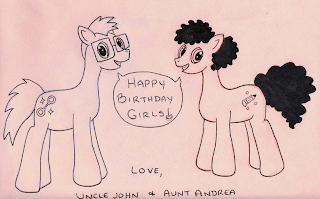 HAPPY
BIRTHDAY
GIRLS!
LOVE,
UNCLE JOHN & AUNT ANDREA